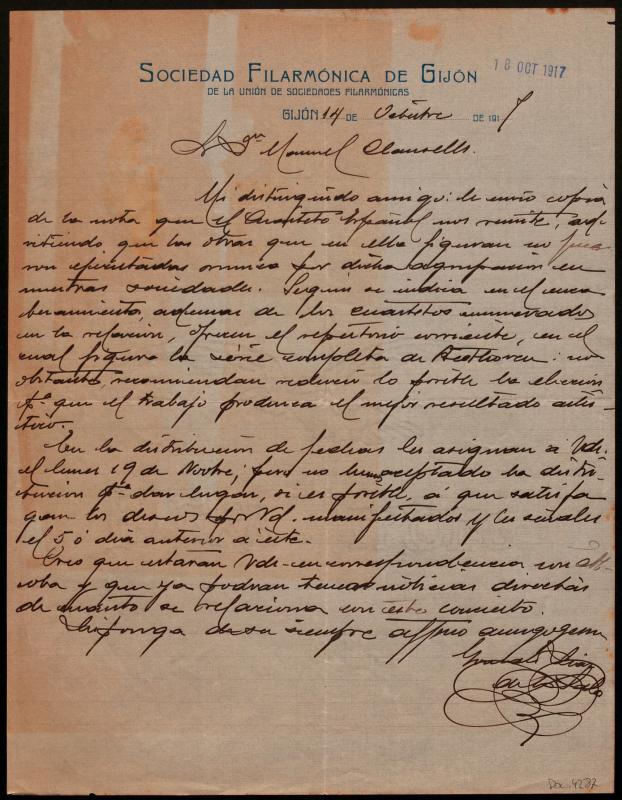 18 OCT 1917
SOCIEDAD FILARMÓNICA DE GIJÓN
DE LA UNIÓN DE SOCIEDADES FILARMÓNICAS
GIJÓN 14 DE Octubre DE 1917
S. Dn Manuel Clausells.
Mi distinguido amigo: le envio copia
de la nota que el Cuarteto Español nos remite, ad-
virtiendo que las obras que en ella figuran no fue-
ron ejecutadas nunca por dicha agrupación en
nuestras sociedades. Segun se indica en el enca-
bezamiento, ademas de los cuartetos enumerados
en la relación, ofrecen el repertorio corriente, en el
cual figura la série completa de Beethoven: no
obstante, recomiendan reducir lo posible la elección
pa. que el trabajo produzca el mejor resultado artis-
tico.
En la distribución de fechas les asignan á Vds.
el lunes 19 de Novbre; pero no hemos aceptado la distri-
bucion pa. dar lugar, si es posible, á que satisfa-
gan los deseos por Vd. manifestados y les señalen
el 5 ó dia anterior á este.
Creo que estarán Vds. en correspondencia con
y que ya podran tener noticias directas
de cuanto se relaciona con este concierto.
Disponga de su siempre affmo amigo
de la
Doc. 4237